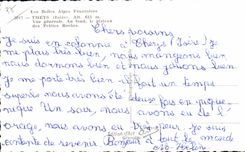 Les Belles Alpes Françaises
THEYS (Isère). Alt. 615 m.
Vue générale. Au fond, le plateau
des Petites Roches
Chers voisins
Je suis en colonie à Theys (Isère) Je
me plais très bien, nous mangeons bien
nous dormons bien, nous jouons bien
Je me porte très bien il fait un temps
superbe nous avons été deux fois en pique
nique Un soir, nous avons eu de l'
orage, nous avons eu peur, Je suis
contente de revenir. Bonjour à